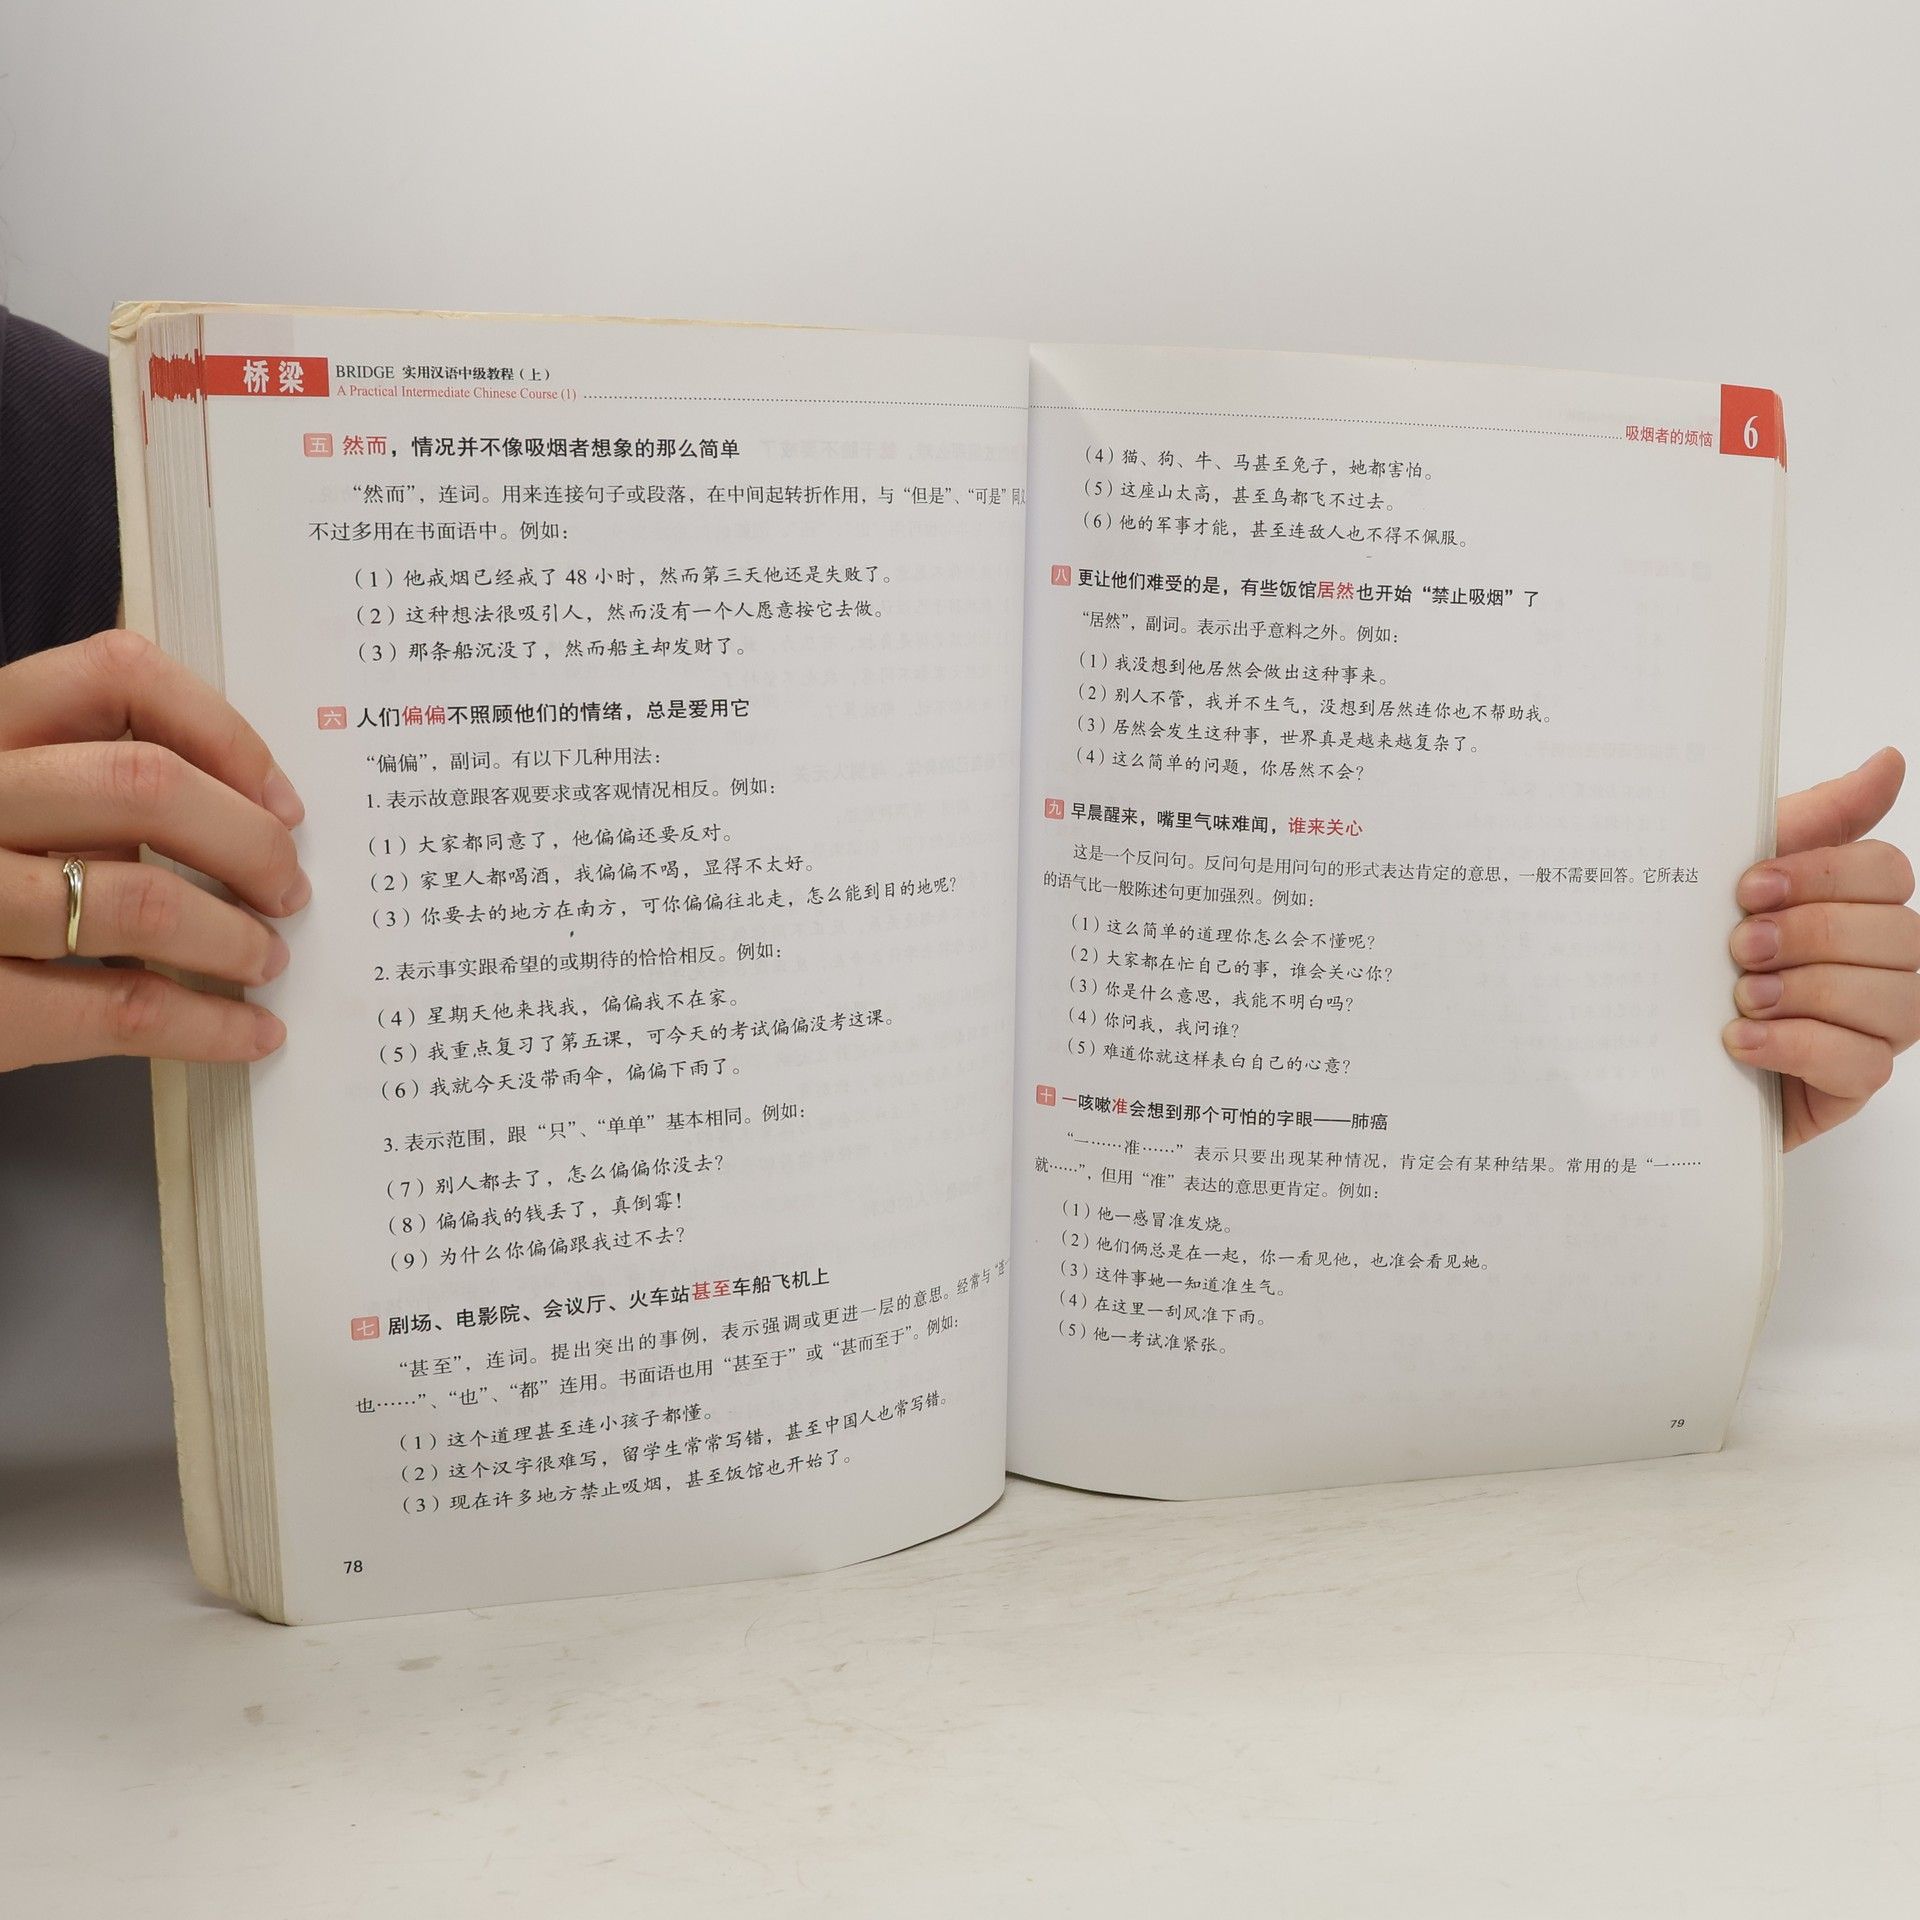 桥梁
BRIDGE 实用汉语中级教程（上）
A Practical Intermediate Chinese Course (1)
五 然而，情况并不像吸烟者想象的那么简单
“然而”，连词。用来连接句子或段落，在中间起转折作用，与“但是”、“可是”同义
不过多用在书面语中。例如：
（1）他戒烟已经戒了 48 小时，然而第三天他还是失败了。
（2）这种想法很吸引人，然而没有一个人愿意按它去做。
（3）那条船沉没了，然而船主却发财了。
六 人们偏偏不照顾他们的情绪，总是爱用它
“偏偏”，副词。有以下几种用法：
1. 表示故意跟客观要求或客观情况相反。例如：
（1）大家都同意了，他偏偏还要反对。
（2）家里人都喝酒，我偏偏不喝，显得不太好。
（3）你要去的地方在南方，可你偏偏往北走，怎么能到目的地呢？
2. 表示事实跟希望的或期待的恰恰相反。例如：
（4）星期天他来找我，偏偏我不在家。
（5）我重点复习了第五课，可今天的考试偏偏没考这课。
（6）我就今天没带雨伞，偏偏下雨了。
3. 表示范围，跟“只”、“单单”基本相同。例如：
（7）别人都去了，怎么偏偏你没去？
（8）偏偏我的钱丢了，真倒霉！
（9）为什么你偏偏跟我过不去？
七 剧场、电影院、会议厅、火车站甚至车船飞机上
“甚至”，连词。提出突出的事例，表示强调或更进一层的意思。经常与“连
也……”、“也”、“都”连用。书面语也用“甚至于”或“甚而至于”。例如：
（1）这个道理甚至连小孩子都懂。
（2）这个汉字很难写，留学生常常写错，甚至中国人也常写错。
（3）现在许多地方禁止吸烟，甚至饭馆也开始了。
78
吸烟者的烦恼
6
（4）猫、狗、牛、马甚至兔子，她都害怕。
（5）这座山太高，甚至鸟都飞不过去。
（6）他的军事才能，甚至连敌人也不得不佩服。
八 更让他们难受的是，有些饭馆居然也开始“禁止吸烟”了
“居然”，副词。表示出乎意料之外。例如：
（1）我没想到他居然会做出这种事来。
（2）别人不管，我并不生气，没想到居然连你也不帮助我。
（3）居然会发生这种事，世界真是越来越复杂了。
（4）这么简单的问题，你居然不会？
九 早晨醒来，嘴里气味难闻，谁来关心
这是一个反问句。反问句是用问句的形式表达肯定的意思，一般不需要回答。它所表达
的语气比一般陈述句更加强烈。例如：
（1）这么简单的道理你怎么会不懂呢？
（2）大家都在忙自己的事，谁会关心你？
（3）你是什么意思，我能不明白吗？
（4）你问我，我问谁？
（5）难道你就这样表白自己的心意？
十 一咳嗽准会想到那个可怕的字眼——肺癌
“一……准……”表示只要出现某种情况，肯定会有某种结果。常用的是“一……
就……”，但用“准”表达的意思更肯定。例如：
（1）他一感冒准发烧。
（2）他们俩总是在一起，你一看见他，也准会看见她。
（3）这件事她一知道准生气。
（4）在这里一刮风准下雨。
（5）他一考试准紧张。
79